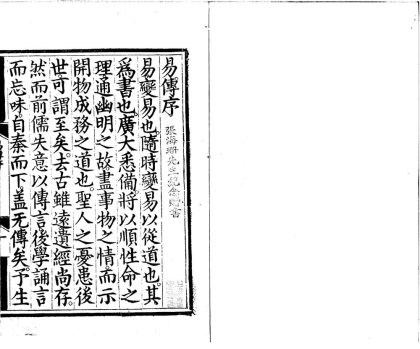 易傳序
張海珊先生記念贈書
易變易也隨時變易以從道也其
爲書也廣大悉備將以順性命之
理通幽明之故盡事物之情而示
開物成務之道也聖人之憂患後
世可謂至矣去古雖遠遺經尚存
然而前儒失意以傳言後學誦言
而忘味自秦而下蓋无傳矣予生